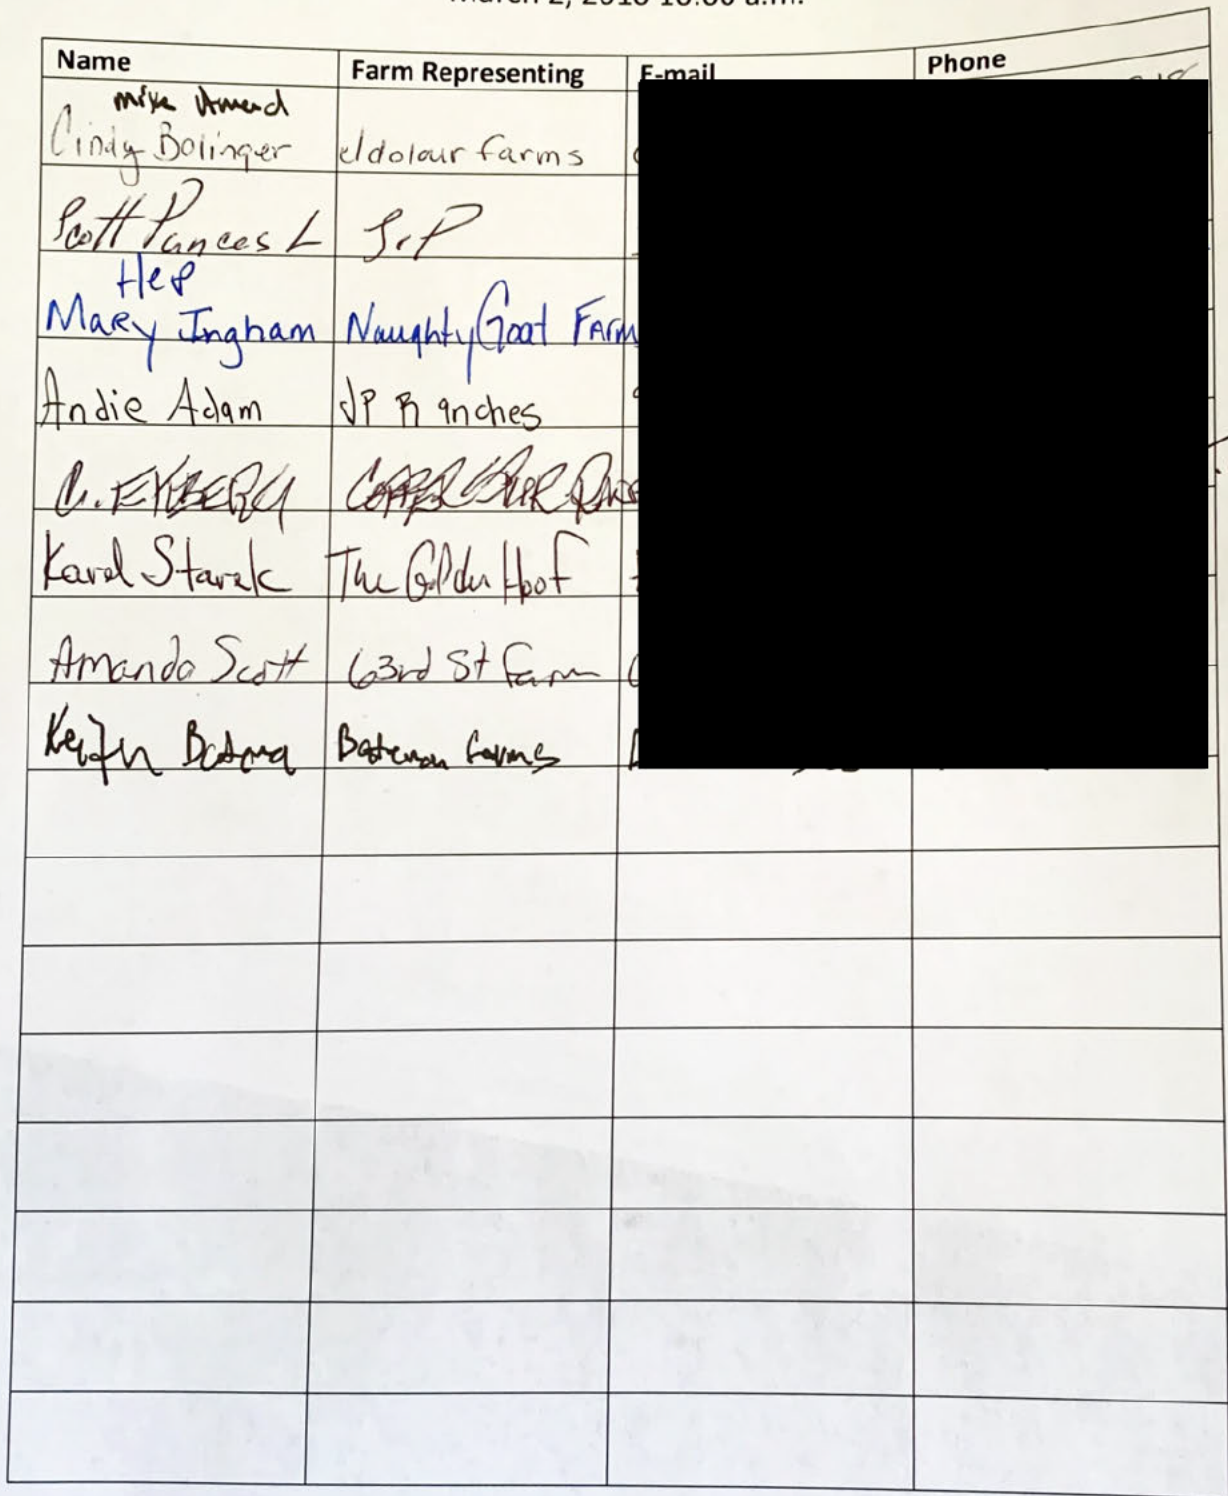 Name Farm Representing E-mail Phone
Mike Amend
Cindy Bolinger eldolour farms
Scott Pances L
Mary Ingham Naughty Goat Farm
Andie Adam JP Ranches
C. EKBERG
Karel Starek The Golden Hoof
Amanda Scott 63rd St Farm
Bateman Farms